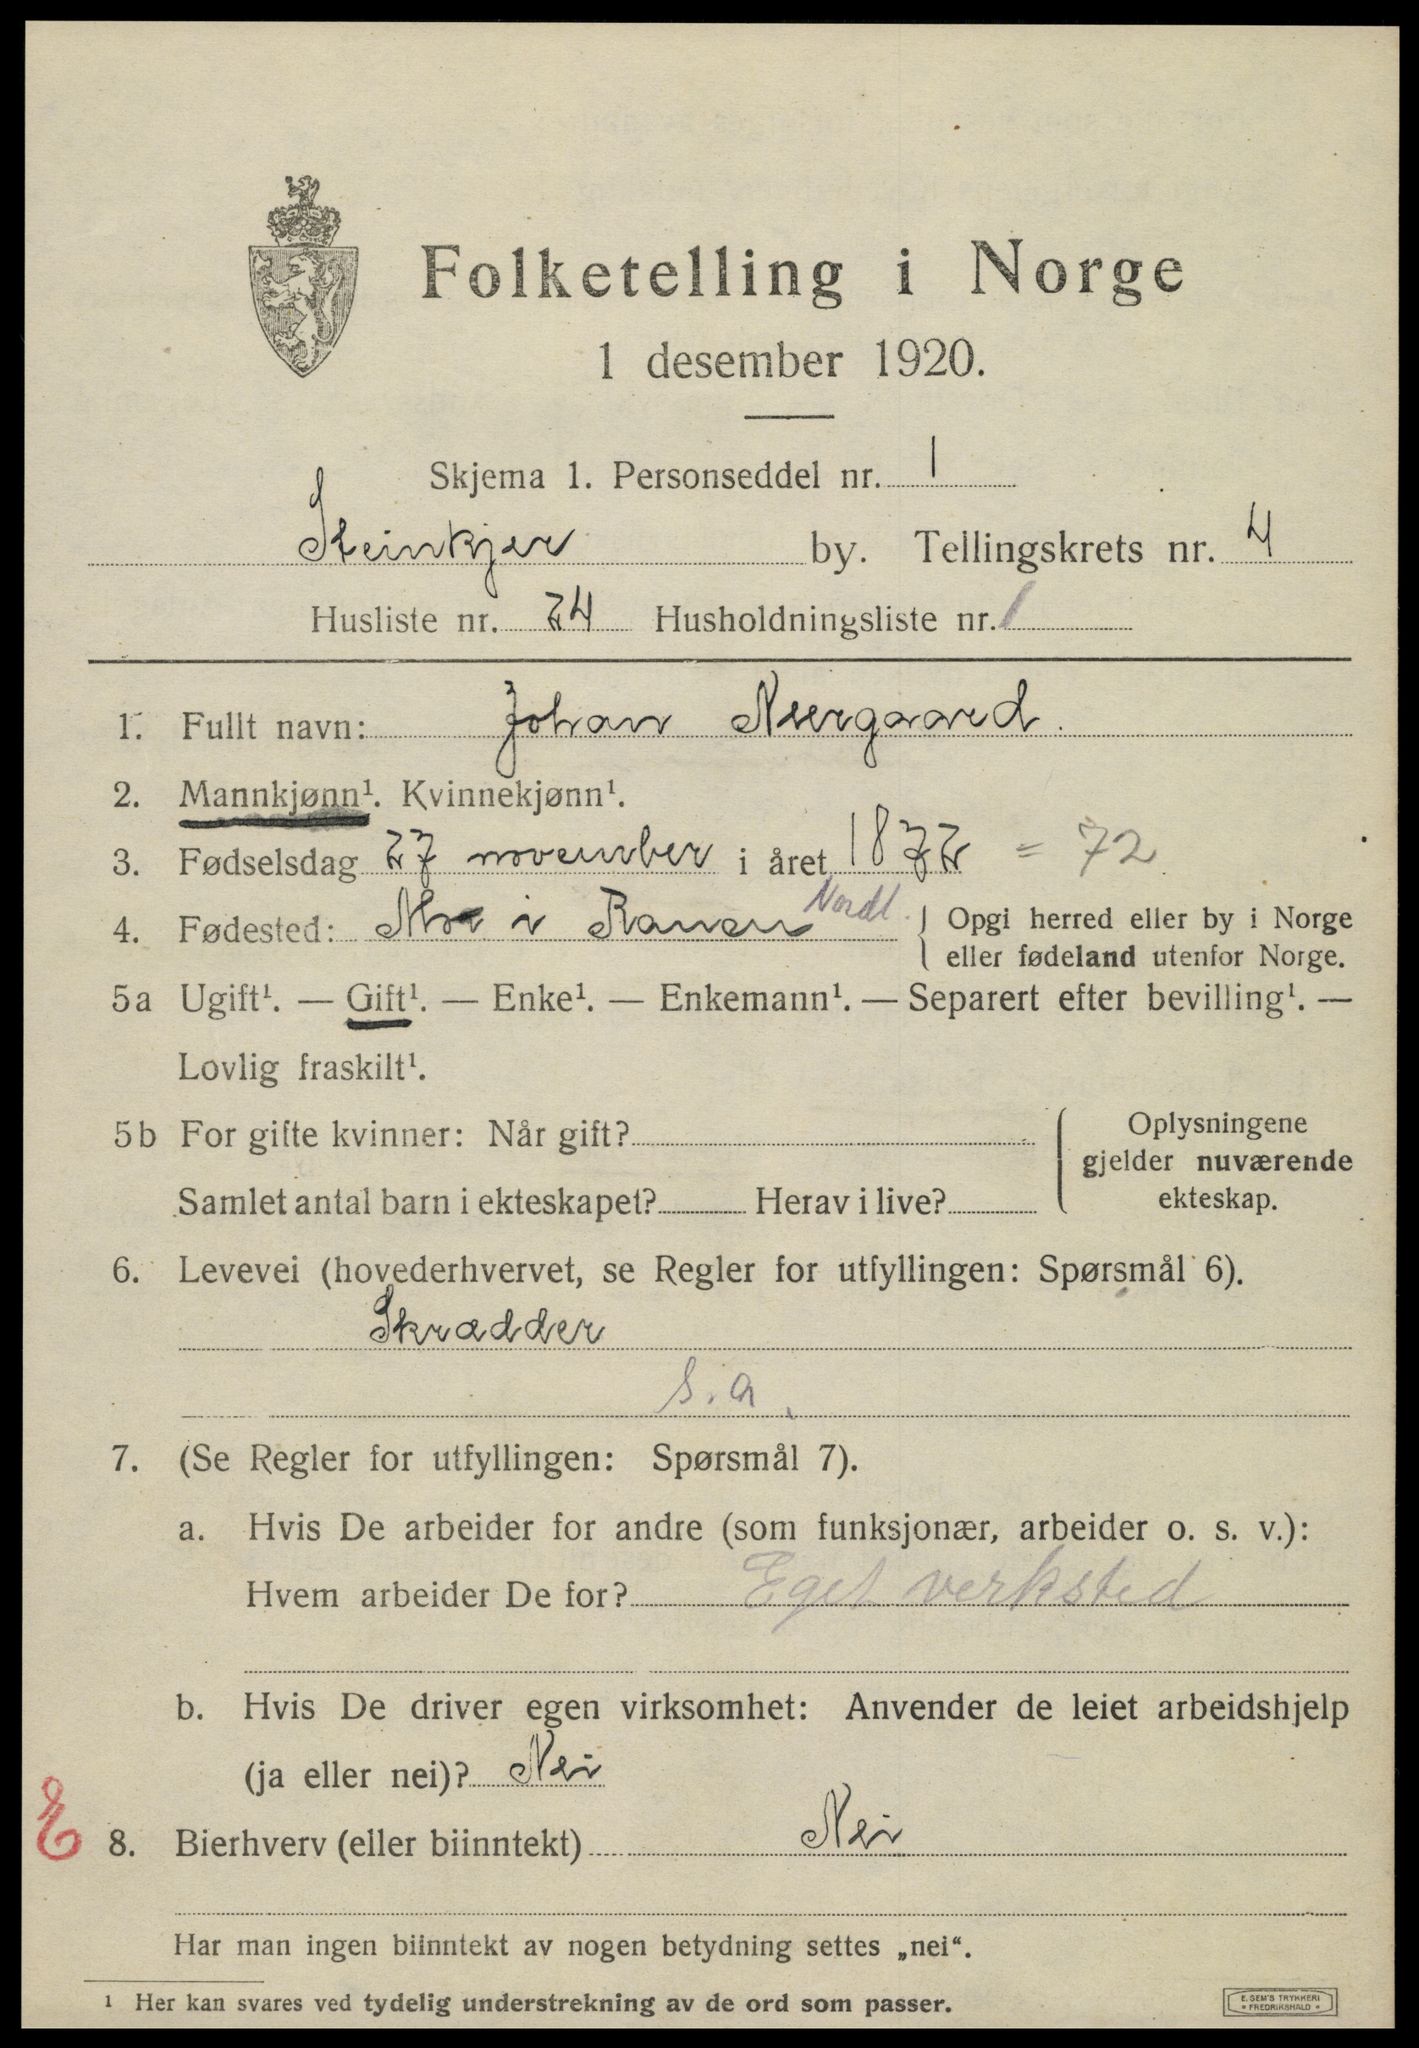 Folketelling i Norge
1 desember 1920.
Skjema 1. Personseddel nr. 1
Steinkjer by. Tellingskrets nr. 4
Husliste nr. 24 Husholdningsliste nr. 1
1. Fullt navn: Johan Neergaard.
2. Mannkjønn¹. Kvinnekjønn¹.
3. Fødselsdag 27 november i året 1872 = 72
4. Fødested: Mo i Ranen Nordl. Opgi herred eller by i Norge
eller fødeland utenfor Norge.
5a Ugift¹. — Gift¹. — Enke¹. — Enkemann¹. — Separert efter bevilling¹. —
Lovlig fraskilt¹.
5b For gifte kvinner: Når gift? Oplysningene
gjelder nuværende
Samlet antal barn i ekteskapet? Herav i live? ekteskap.
6. Levevei (hovederhvervet, se Regler for utfyllingen: Spørsmål 6).
Skrædder
s.a.
7. (Se Regler for utfyllingen: Spørsmål 7).
a. Hvis De arbeider for andre (som funksjonær, arbeider o. s. v.):
Hvem arbeider De for? Eget verksted
b. Hvis De driver egen virksomhet: Anvender de leiet arbeidshjelp
(ja eller nei)? Nei
E 8. Bierhverv (eller biinntekt) Nei
Har man ingen biinntekt av nogen betydning settes „nei“.
¹ Her kan svares ved tydelig understrekning av de ord som passer.
E. SEM'S TRYKKERI
FREDRIKSHALD